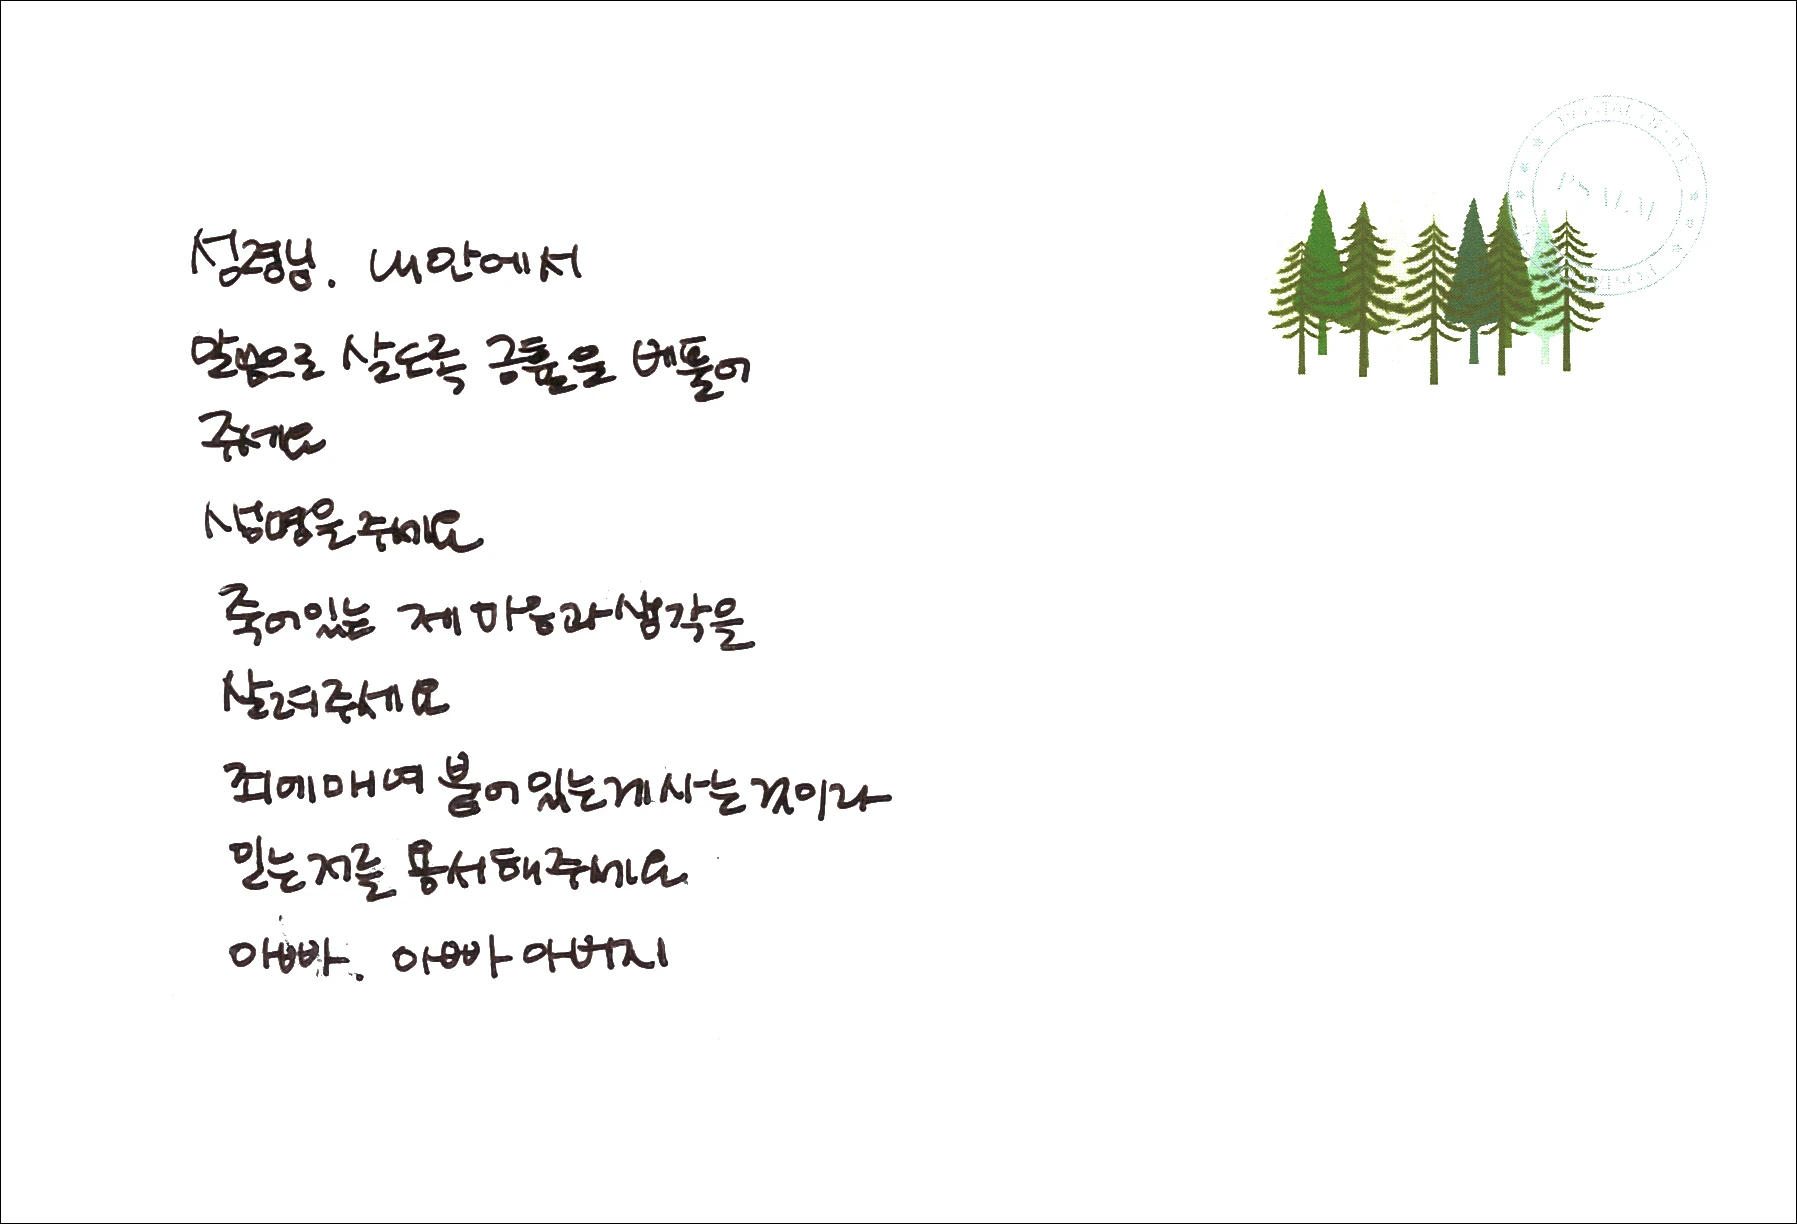 성경님. 내 안에서
말씀으로 살도록 긍휼을 베풀어
주세요
생명을 주세요
죽어있는 제 마음과 생각을
살려주세요
죄에 매여 붙어 있는게 사는 것이라
믿는 저를 용서해주세요
아빠. 아빠 아버지
PSALM